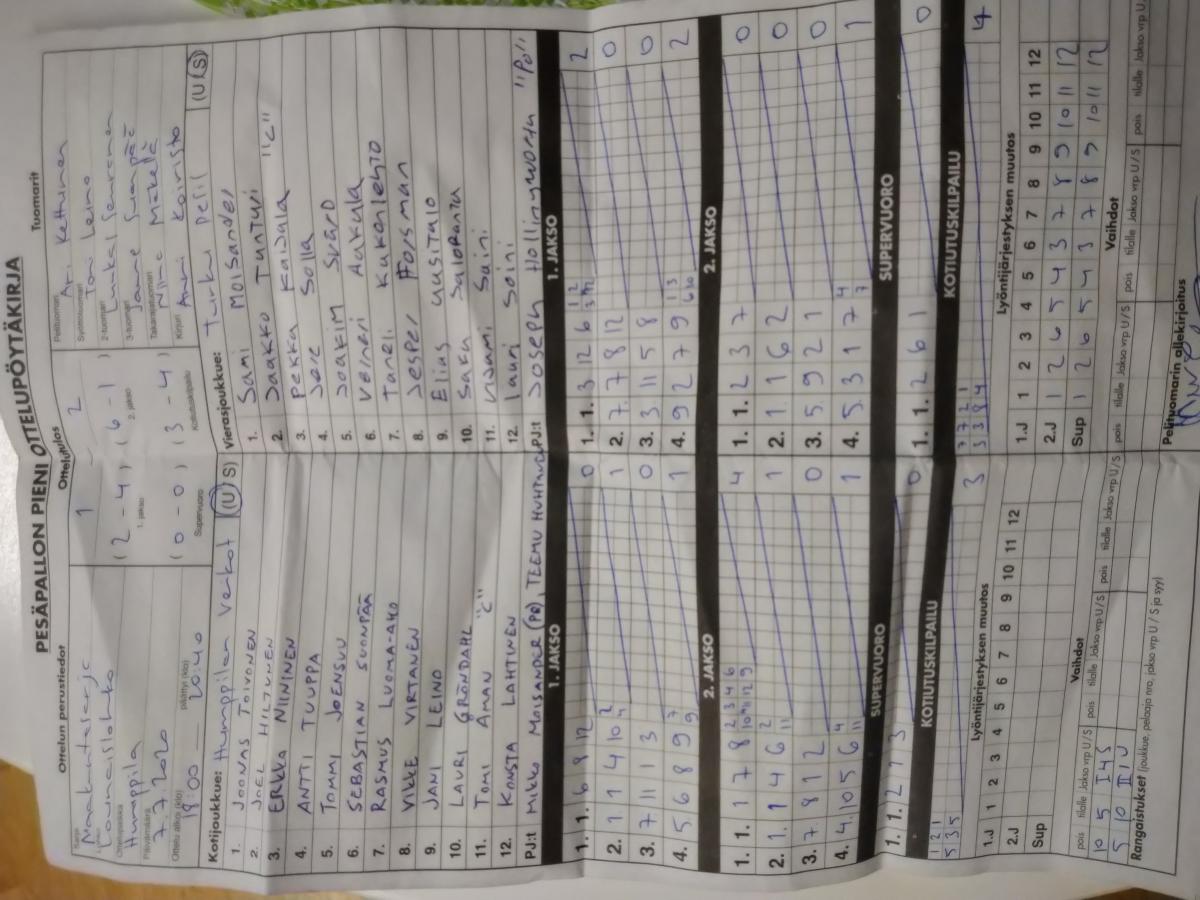 PESÄPALLON PIENI OTTELUPÖYTÄKIRJA
Ottelun perustiedot
Ottelutulos
Tuomarit
Sarja
Maakuntasarja
Lounaislohko
Ottelupaikka
Humppila
Päivämäärä
7.7.2020
Ottelu alkoi (klo)
18:00
päättyi (klo)
20:40
1 – 2
(2 – 4) (6 – 1)
1. jakso
2. jakso
(0 – 0) (3 – 4)
Supervuoro
Kotiutuskilpailu
Pelituomari
Ari Kettunen
Syöttötuomari
Toni Leino
2-tuomari
3-tuomari
Janne
Takarajatuomari
Mäkelä
Kirjuri
Anni Koivisto
Kotijoukkue: Humppilan Veikot (U S)
1. JOONAS TOIVONEN
2. JOEL HILTUNEN
3. ERKKA NIININEN
4. ANTTI TUUPPA
5. TOMMI JOENSUU
6. SEBASTIAN SUONPÄÄ
7. RASMUS LUOMA-AHO
8. VIKKE VIRTANEN
9. JANI LEINO
10. LAURI GRÖNDAHL
11. TOMI ÅMAN "C"
12. KONSTA LAHTINEN
PJ:t MIKKO MOISANDER (PP), TEEMU
Vierasjoukkue: Turku Pesis (U S)
1. SAMI MOISANDER
2. JAAKKO TUNTURI "C"
3. PEKKA KAIJALA
4. JERE SOLLA
5. JOAKIM SVÄRD
6. VERNERI AAKULA
7. TANELI KUKONLEHTO
8. JESPER FORSMAN
9. ELIAS UUSITALO
10. SAKU SALORANTA
11. VISAMI SAINI
12. LAURI SOINI
PJ:t JOSEPH HOLLINGWORTH "PJ"
1. JAKSO
1. 1. 6 8 12 0
2. 1 1 4 10 2 4 1
3. 7 11 1 3 0
4. 5 6 8 9 7 9 1
1. JAKSO
1. 1. 3 12 6 1 2 3 12 2
2. 7 7 8 12 0
3. 3 11 5 8 0
4. 9 2 7 9 1 3 6 10 2
2. JAKSO
1. 1. 1 7 8 2 3 4 6 10 11 12 9 4
2. 1. 1 4 6 2 11 1
3. 7 8 12 0
4. 4. 10 5 6 4 11 1
2. JAKSO
1. 1. 2 3 7 0
2. 1. 1 6 2 0
3. 5. 9 2 1 0
4. 5. 3 1 7 4 7 1
SUPERVUORO
1. 1. 1 2 1 3 0
SUPERVUORO
1. 1. 2 6 1 0
KOTIUTUSKILPAILU
1 2 1
5 3 5
3
KOTIUTUSKILPAILU
7 7 2 1
3 3 8 4
4
Lyöntijärjestyksen muutos
1.J 1 2 3 4 5 6 7 8 9 10 11 12
2.J
Sup
Lyöntijärjestyksen muutos
1.J 1 2 3 4 5 6 7 8 9 10 11 12
2.J 1 2 6 5 4 3 7 8 9 10 11 12
Sup 1 2 6 5 4 3 7 8 9 10 11 12
Vaihdot
pois tilalle Jakso vrp U/S pois tilalle Jakso vrp U/S pois tilalle Jakso vrp U/S
10 5 I 4 S
5 10 II 1 U
Vaihdot
pois tilalle Jakso vrp U/S pois tilalle Jakso vrp U/S pois tilalle Jakso vrp U
Rangaistukset (joukkue, pelaaja nro, jakso vrp U / S ja syy)
Pelituomarin allekirjoitus